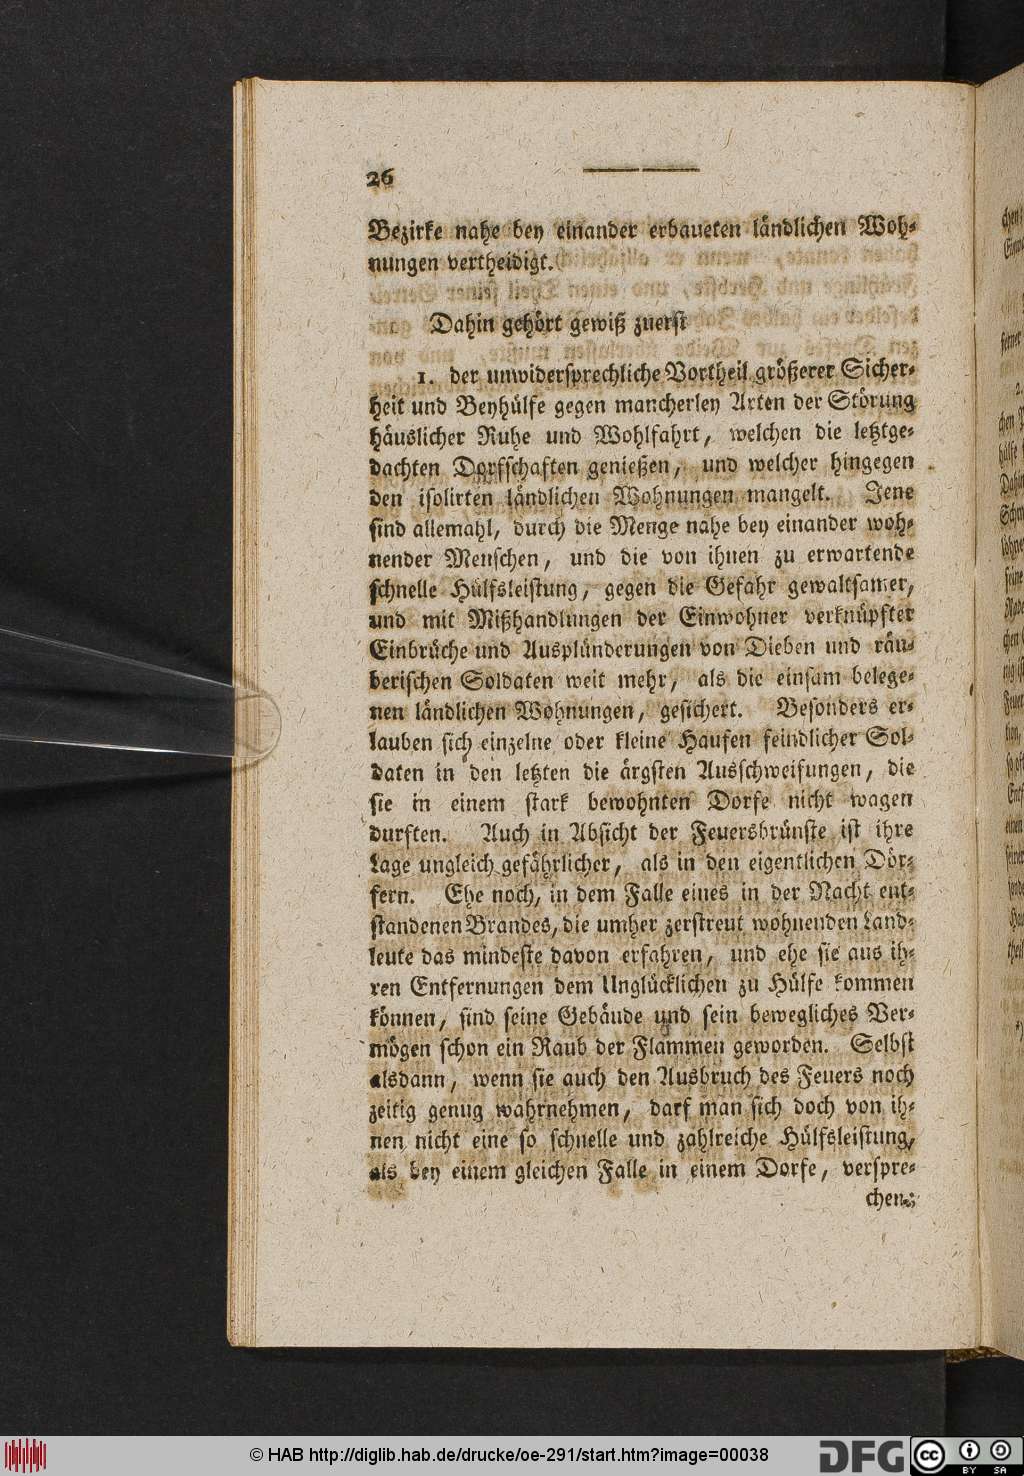 26
Bezirke nahe bey einander erbaueten ländlichen Woh-
nungen vertheidigt.
Dahin gehört gewiß zuerst
1. der unwidersprechliche Vortheil größerer Sicher-
heit und Beyhülfe gegen mancherley Arten der Störung
häuslicher Ruhe und Wohlfahrt, welchen die letztge-
dachten Dorfschaften genießen, und welcher hingegen
den isolirten ländlichen Wohnungen mangelt. Jene
sind allemahl, durch die Menge nahe bey einander woh-
nender Menschen, und die von ihnen zu erwartende
schnelle Hülfsleistung, gegen die Gefahr gewaltsamer,
und mit Mißhandlungen der Einwohner verknüpfter
Einbrüche und Ausplünderungen von Dieben und räu-
berischen Soldaten weit mehr, als die einsam belege-
nen ländlichen Wohnungen, gesichert. Besonders er-
lauben sich einzelne oder kleine Haufen feindlicher Sol-
daten in den letzten die ärgsten Ausschweifungen, die
sie in einem stark bewohnten Dorfe nicht wagen
durften. Auch in Absicht der Feuersbrünste ist ihre
Lage ungleich gefährlicher, als in den eigentlichen Dör-
fern. Ehe noch, in dem Falle eines in der Nacht ent-
standenen Brandes, die umher zerstreut wohnenden Land-
leute das mindeste davon erfahren, und ehe sie aus ih-
ren Entfernungen dem Unglücklichen zu Hülfe kommen
können, sind seine Gebäude und sein bewegliches Ver-
mögen schon ein Raub der Flammen geworden. Selbst
alsdann, wenn sie auch den Ausbruch des Feuers noch
zeitig genug wahrnehmen, darf man sich doch von ih-
nen nicht eine so schnelle und zahlreiche Hülfsleistung,
als bey einem gleichen Falle in einem Dorfe, verspre-
chen.
© HAB http://diglib.hab.de/drucke/oe-291/start.htm?image=00038
DFG
cc
BY SA